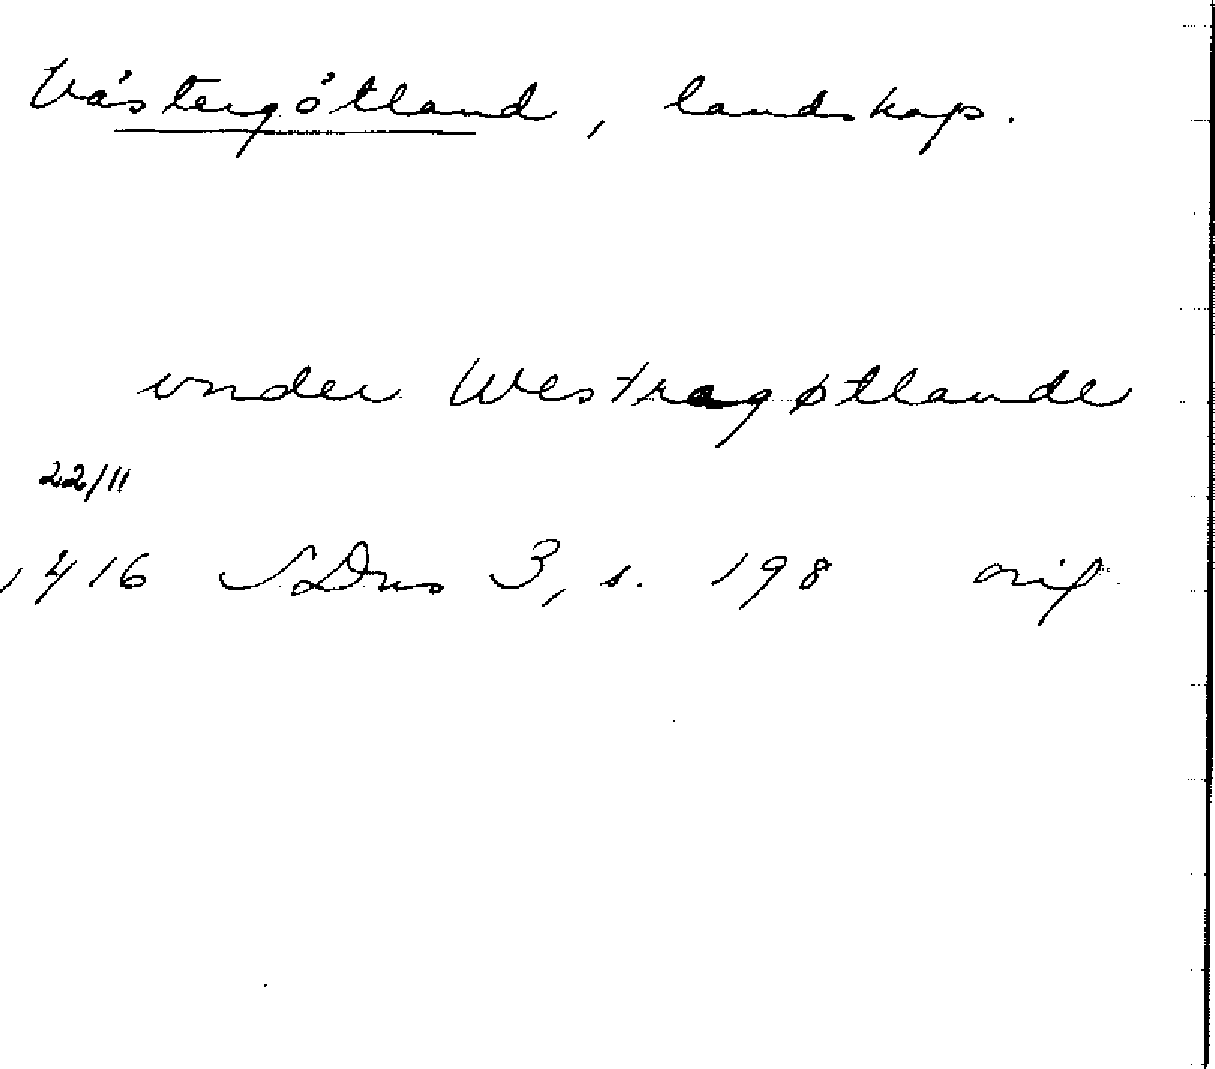 Västergötland, landskap.
vnder Westragøtlande
22/11
1416 SDns 3, s. 198 orig